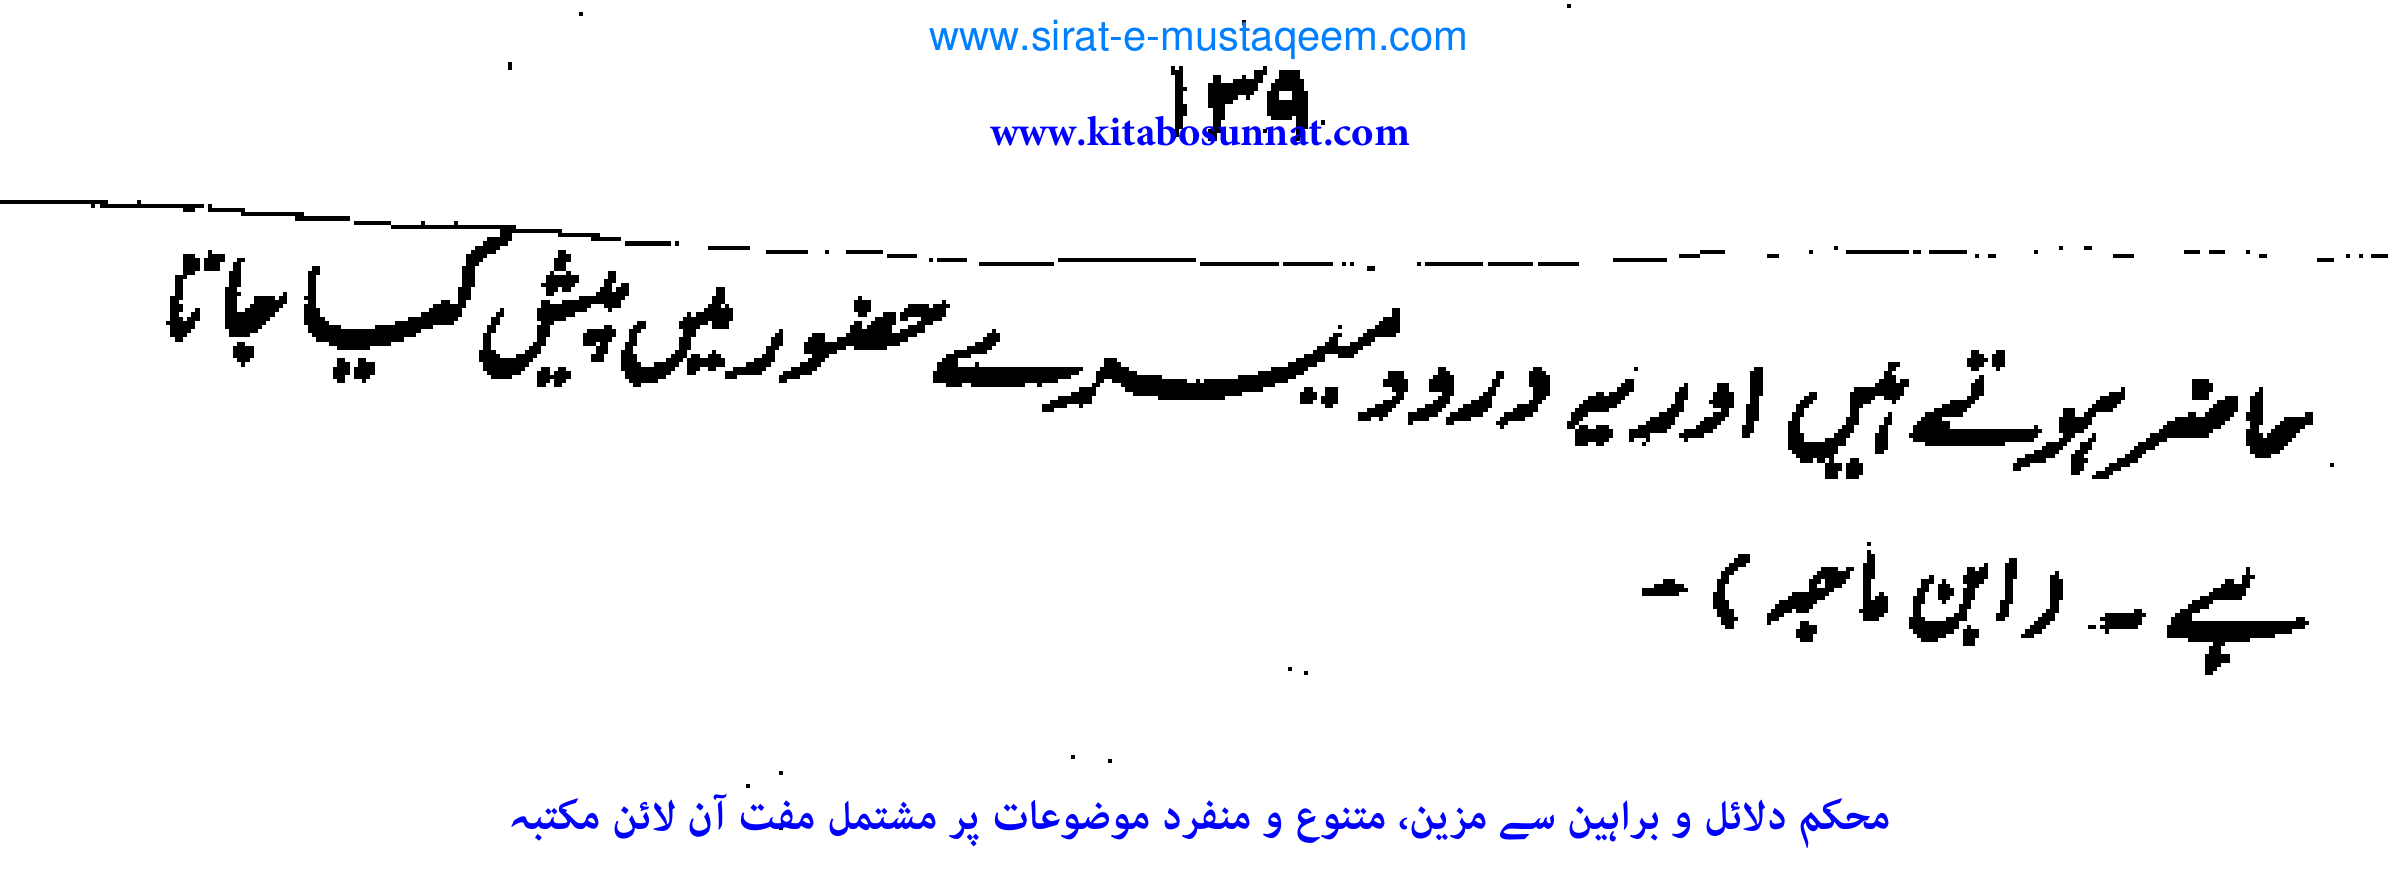 www.sirat-e-mustaqeem.com
۱۳۹
www.kitabosunnat.com
حاضر ہوتے ہیں اور یہ درود میرے حضور میں پیش کیا جاتا
ہے ۔ (ابن ماجہ) ۔
محکم دلائل و براہین سے مزین، متنوع و منفرد موضوعات پر مشتمل مفت آن لائن مکتبہ